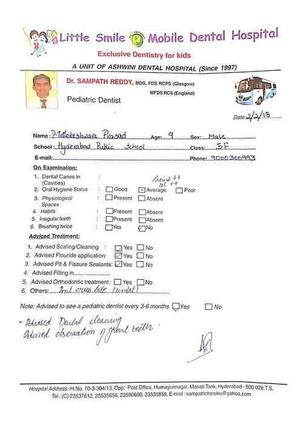 Little Smile Mobile Dental Hospital
Exclusive Dentistry for kids
A UNIT OF ASHWINI DENTAL HOSPITAL (Since 1997)
Dr. SAMPATH REDDY, MDS, FDS RCPS (Glasgow)
MFDS RCS (England)
Pediatric Dentist
Date: 2/2/18
Name: Prasad Age: 9 Sex: Male
School: Hyderabad Public School Class:
E-mail: Phone: 9000300993
On Examination:
1. Dental Caries in :
(Cavities)
2. Oral Hygiene Status : Good Average Poor
3. Physiological : Present Absent
Spaces
4. Habits : Present Absent
5. Irregular teeth : Present Absent
6. Brushing twice : Yes No
Advised Treatment:
1. Advised Scaling/Cleaning : Yes No
2. Advised Flouride application: Yes No
3. Advised Pit & Fissure Sealants: Yes No
4. Advised Filling in
5. Advised Orthodontic treatment : Yes No
6. Others:
Note: Advised to see a pediatric dentist every 3-6 months Yes No
- Advised Dental cleaning
Advised observation of front teeth.
Hospital Address: H.No. 10-3-304/13, Opp: Post Office, Humayunnagar, Masab Tank, Hyderabad - 500 028.T.S.
Tel: (C) 23537612, 23535656, 23590690, 23535858, E-mail: sampathcheruku@yahoo.com